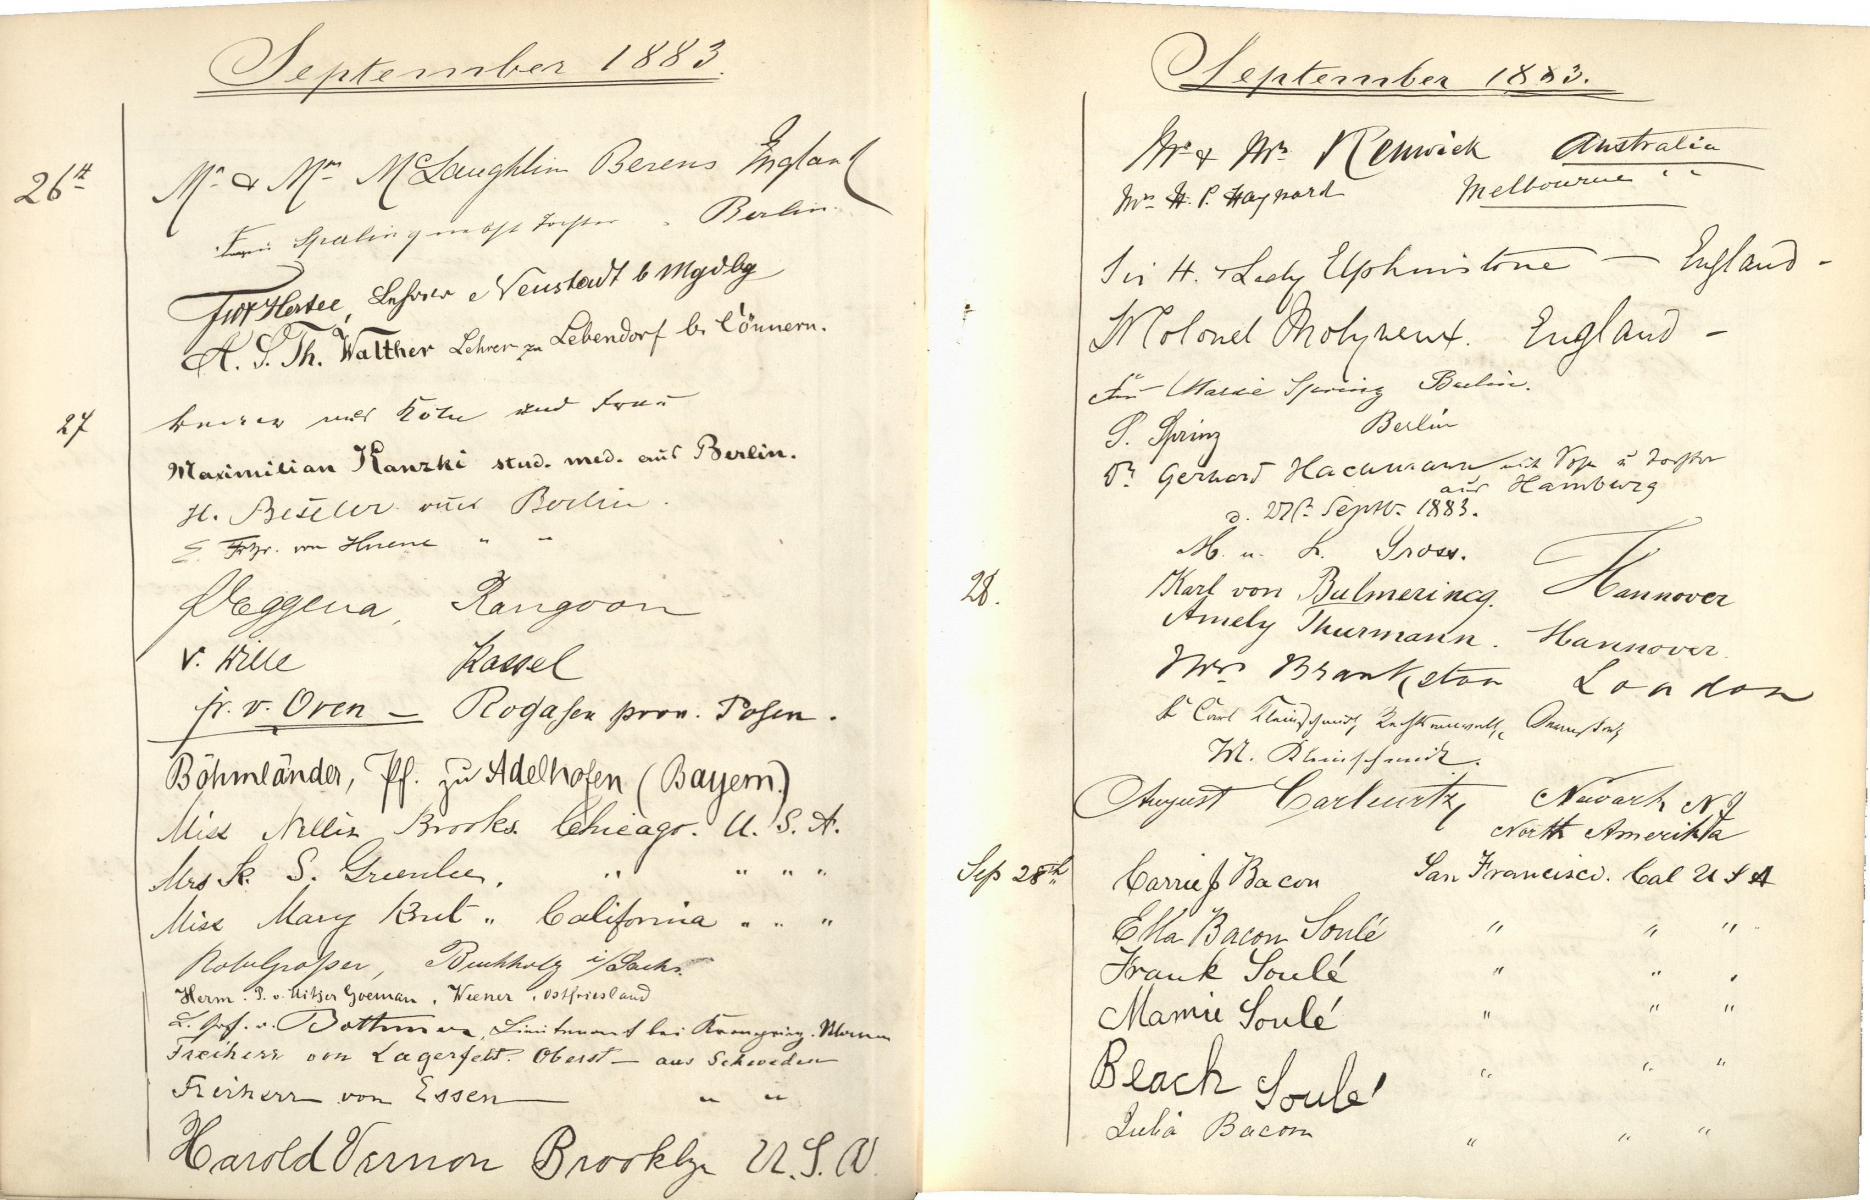 September 1883.
26th
Mr & Mrs McLaughlin Berens England
Berlin.
Lehrer Neustadt b Mgdbg
A. S. Th. Walther Lehrer zu Lebendorf b. Cönnern.
27
aus Köln und Frau
Maximilian Kanzki stud. med. aus Berlin.
H. Beseler aus Berlin.
E. Frhr. von Huene " "
Rangoon
v. Wille Kassel
fr. v. Oven - Rogasen prov. Posen.
Böhmländer, Pf. zu Adelhofen (Bayern.)
Miss Nellie Brooks. Chicago. U. S. A.
Mrs S. Greenlee, " " " "
Miss Mary " California " " "
Buchholz i/Sachs.
Herm. Goeman, Weener, Ostfriesland
v. Bothmer, Lieutenant bei
Freiherr von Lagerfelt. Oberst - aus Schweden
Freiherr von Essen " "
Harold Vernon Brooklyn U. S. A
September 1883.
Mr & Mrs Renwick Australia
Mrs H. P. Haynard Melbourne " "
Sir H. & Lady Elphinstone - England -
Colonel Molyneux. England -
Marie Spring Berlin.
S. Spring Berlin
Dr. Gerhard Hachmann mit u Tochter
aus Hamburg
d. 27t. Septb. 1883.
M. u. L. Gross.
28. Karl von Bulmerincq. Hannover
Amely Thurmann. Hannover.
Mrs Brankston London
Dr Carl Kleinschmidt, Rechtsanwalt, Darmstadt,
M. Kleinschmidt.
August Newark N J
North Amerikta
Sep 28th Carrie J Bacon San Francisco. Cal U S A
Ella Bacon Soulé " " "
Frank Soulé " " "
Mamie Soulé " " "
Beach Soulé " " "
Julia Bacon " " "